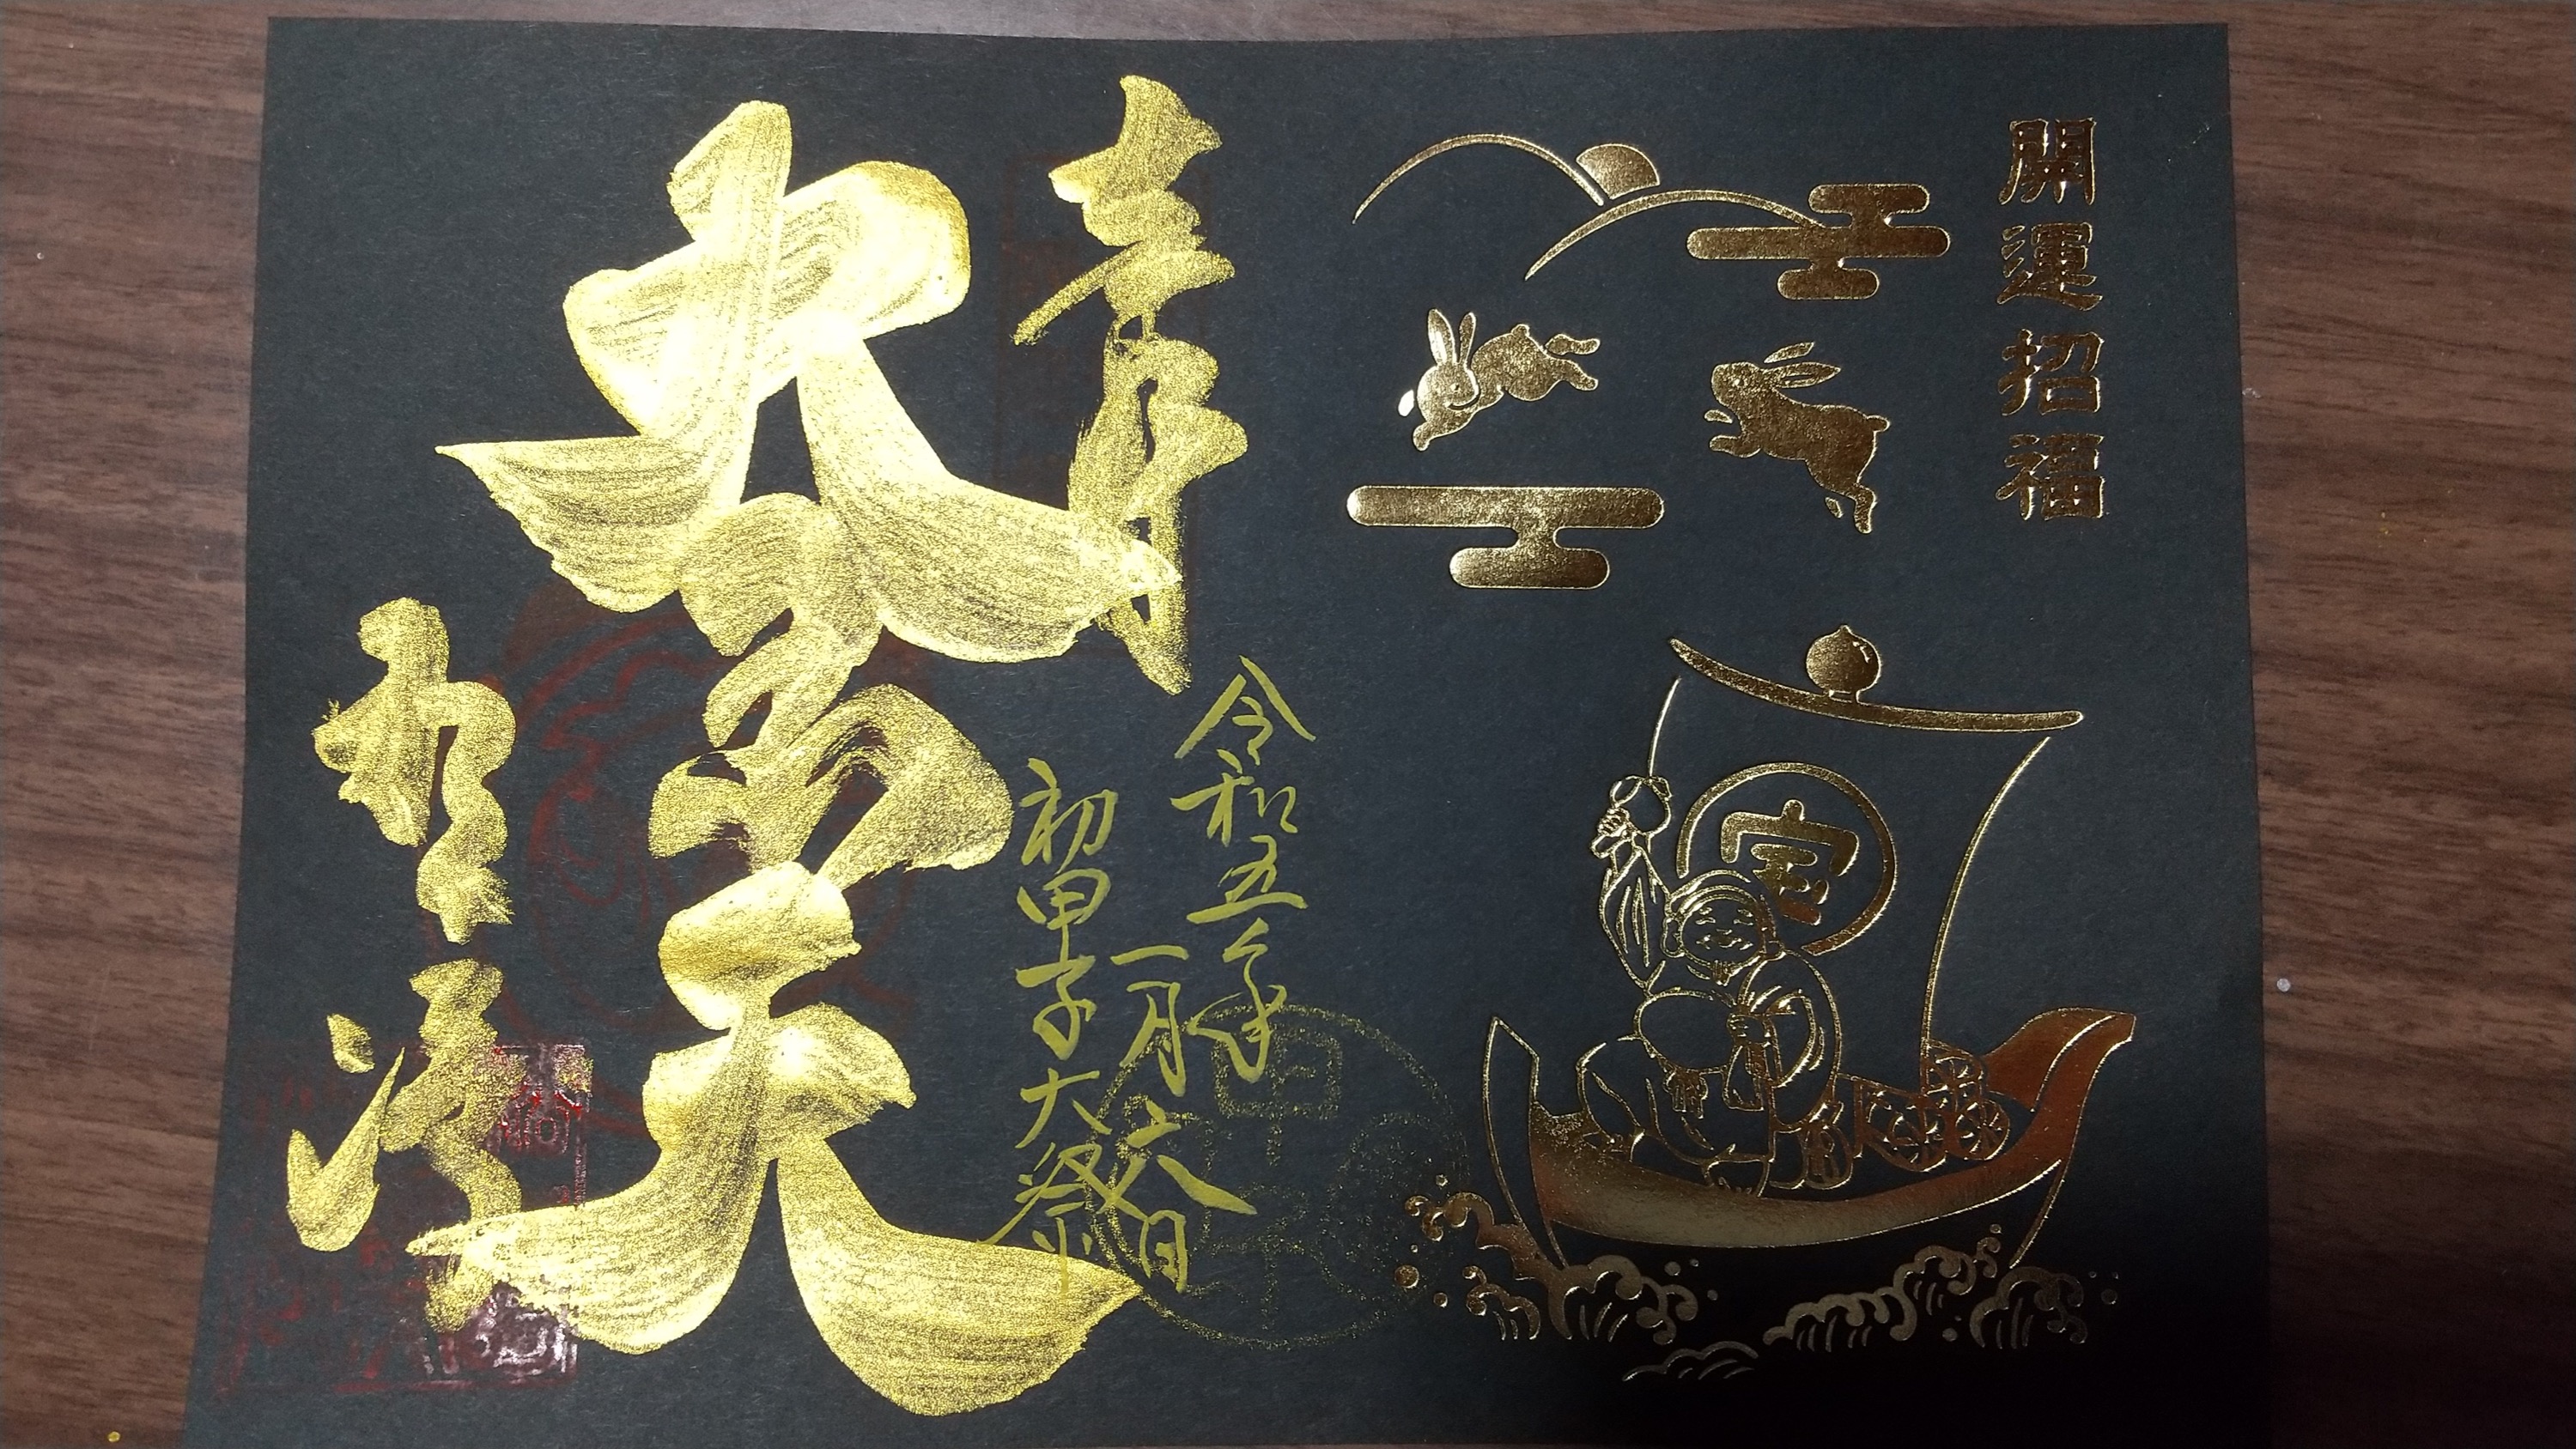 開運招福
宝
奉拝
令和五年
一月六日
初甲子大祭
大黒天
甲子